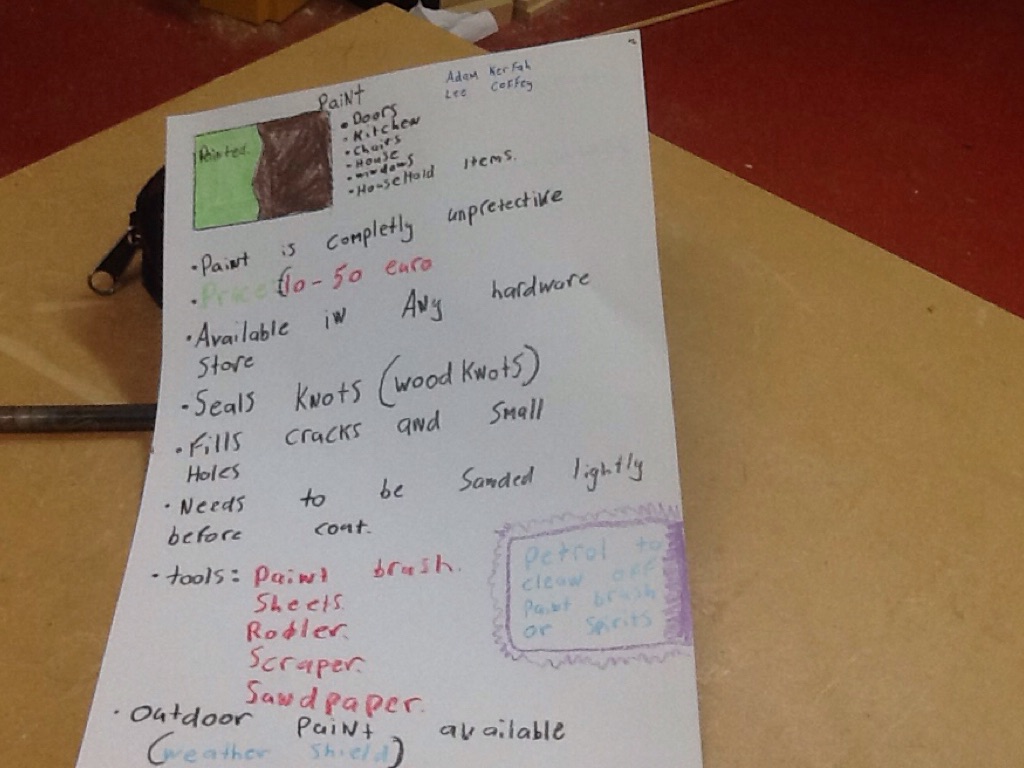 Paint
Adam Kerfah
Lee Coffey
Painted.
• Doors
• Kitchen
• Chairs
• House
• windows
• HouseHold items.
• Paint is completly unpretective
• Price (10 - 50 euro
• Available in Any hardware
Store
• Seals Knots (wood Knots)
• Fills cracks and Small
Holes
• Needs to be Sanded lightly
before coat.
• tools: Paint brush.
Sheets.
Rodler.
Scraper.
Sandpaper.
Petrol to
clean off
Paint brush
or Spirits
• Outdoor Paint available
(weather Shield)